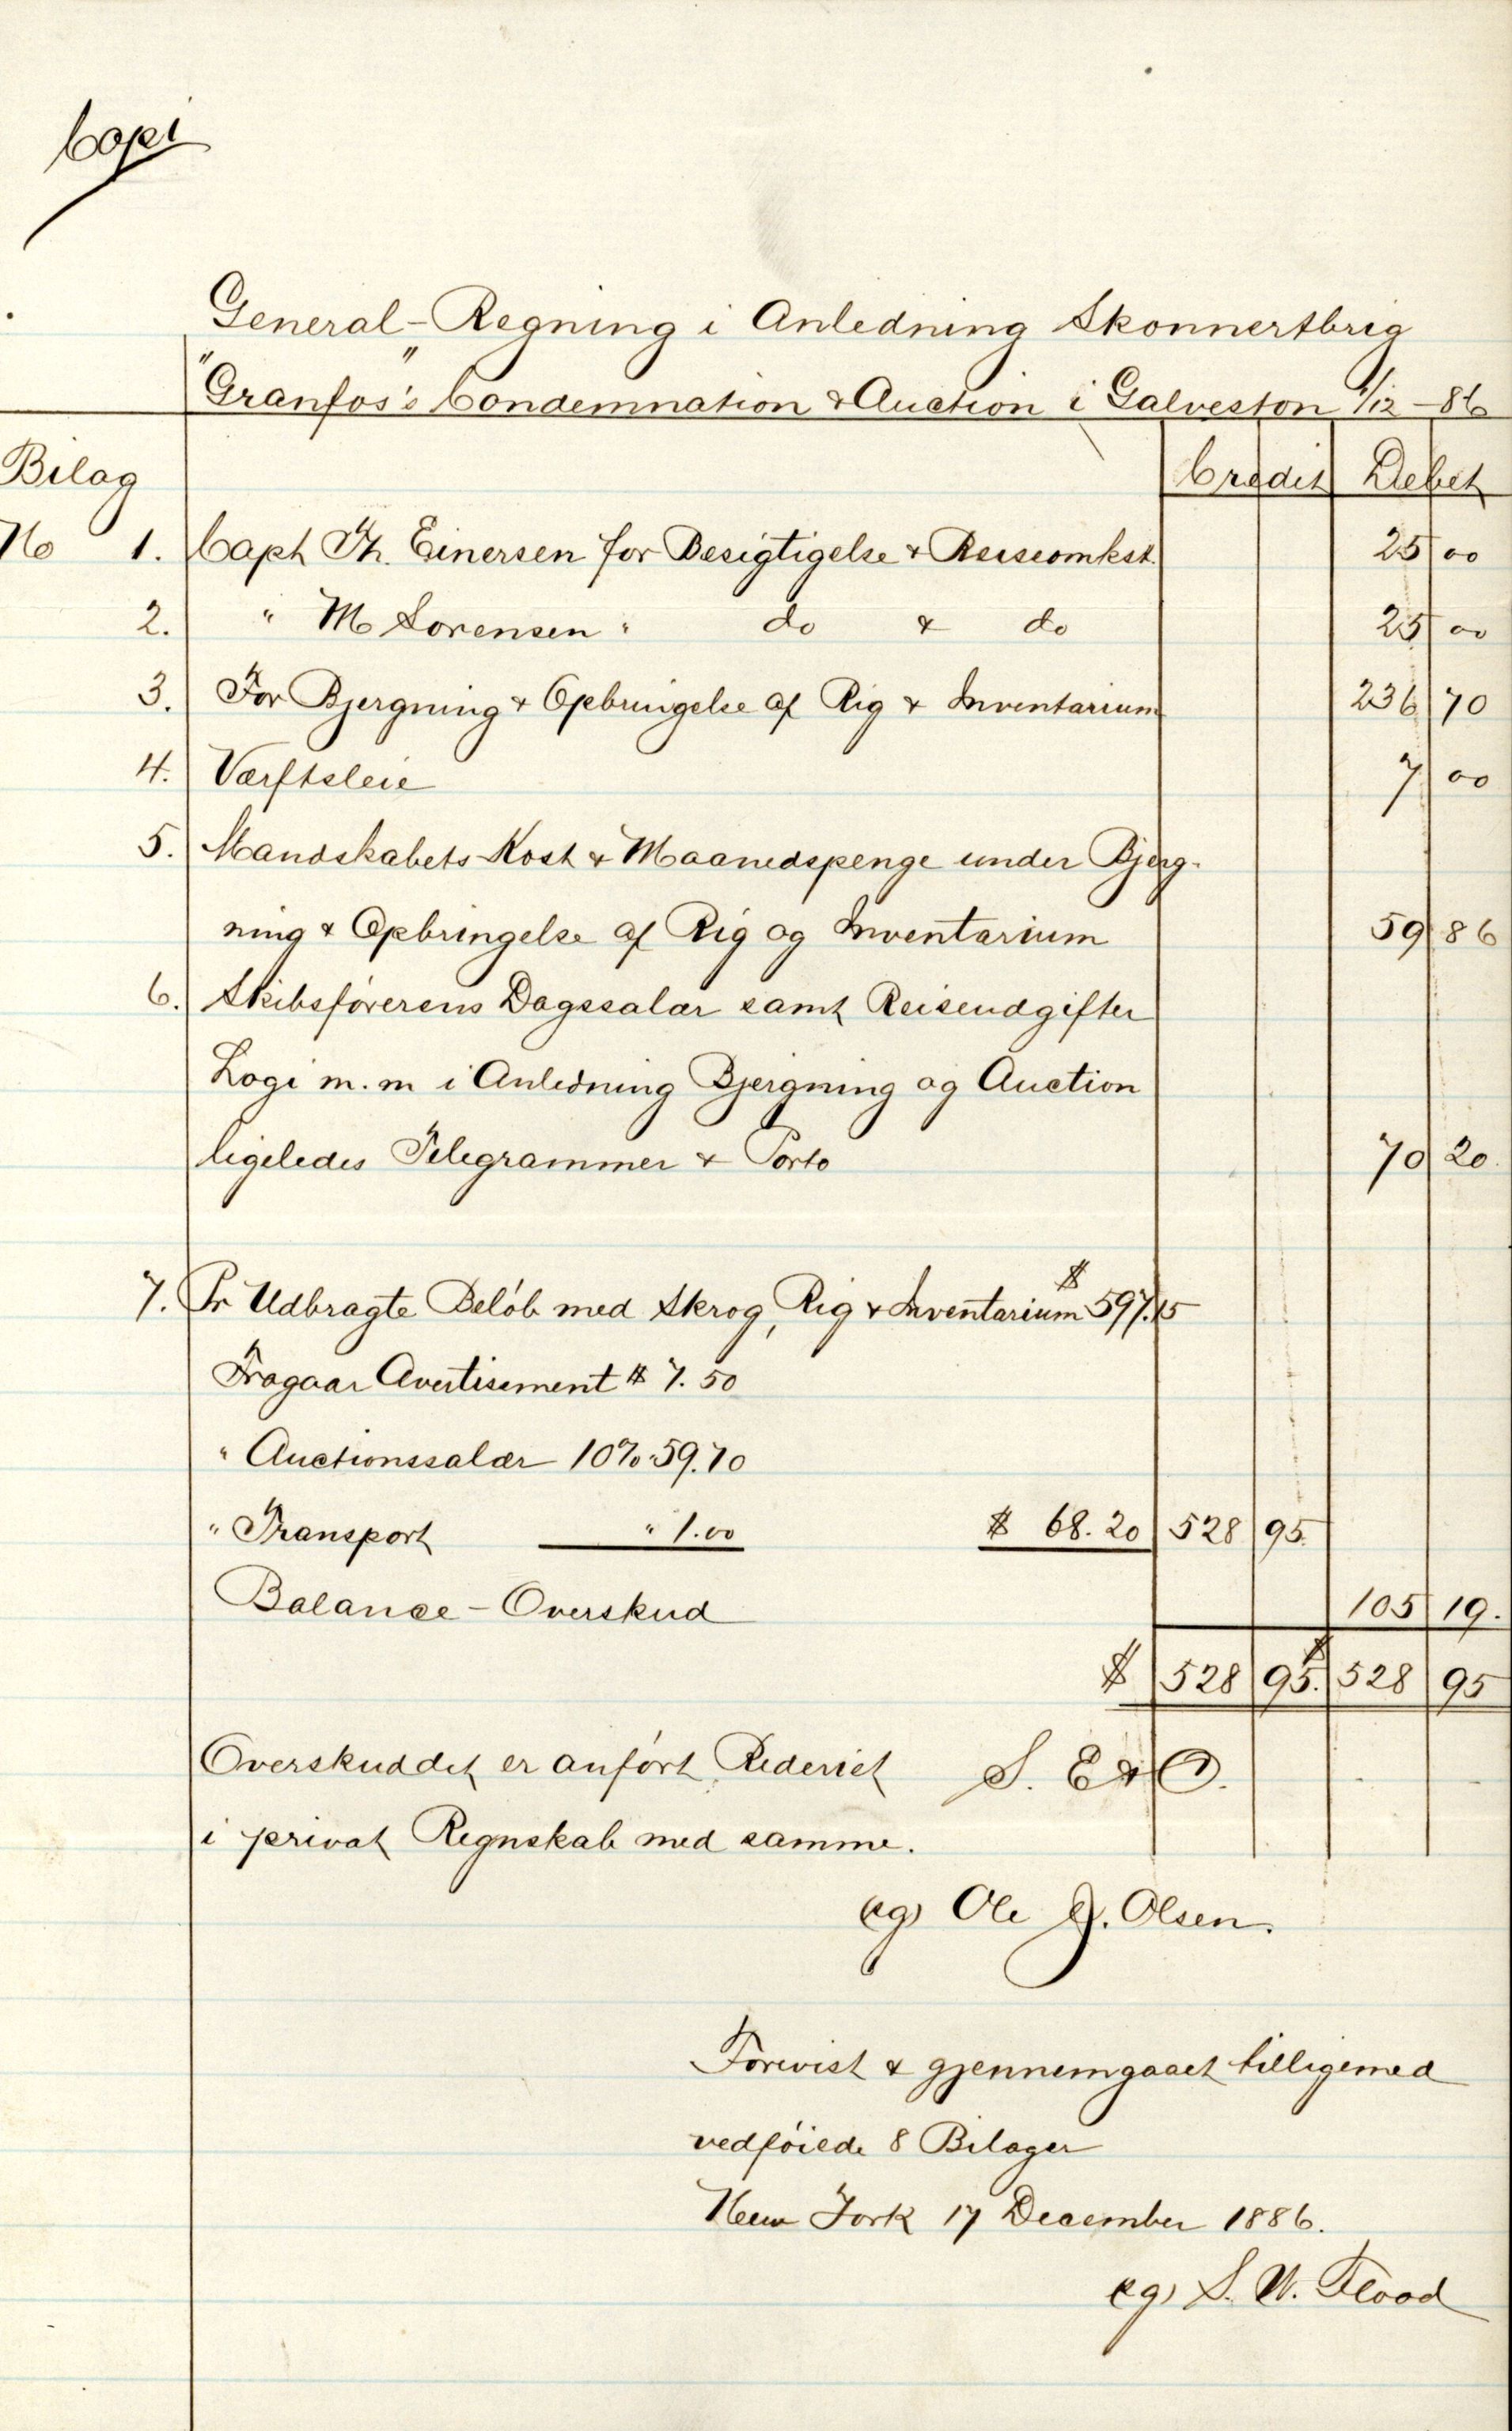 Copi
General-Regning i Anledning Skonnertbrig
"Granfos"'s Condemnation & Auction i Galveston 1/12 - 86
Credit Debet
Bilag
No 1. Capt Th. Einersen for Besigtigelse & Reiseomkst. 25 00
2. " M Sorensen " do & do 25 00
3. For Bjergning & Opbringelse af Rig & Inventarium 236 70
4. Værftsleie 7 00
5. Mandskabets Kost & Maanedspenge under Bjerg-
ning & Opbringelse af Rig og Inventarium 59 86
6. Skibsförerens Dagssalær samt Reiseudgifter
Logi m. m i Anledning Bjergning og Auction
ligeledes Telegrammer & Porto 70 20.
7. Pr Udbragte Belöb med Skrog, Rig & Inventarium $ 597.15
Fragaar Avertisement $ 7.50
" Auctionssalær 10% " 59.70
" Transport " 1.00 $ 68.20 528 95.
Balance - Overskud 105 19.
$ 528 95. $ 528 95
Overskuddet er anfört Rederiet S. E & O.
i privat Regnskab med samme.
(sg) Ole J. Olsen.
Forevist & gjennemgaaet tilligemed
vedföiede 8 Bilager
New York 17 December 1886.
(sg) S. W. Flood